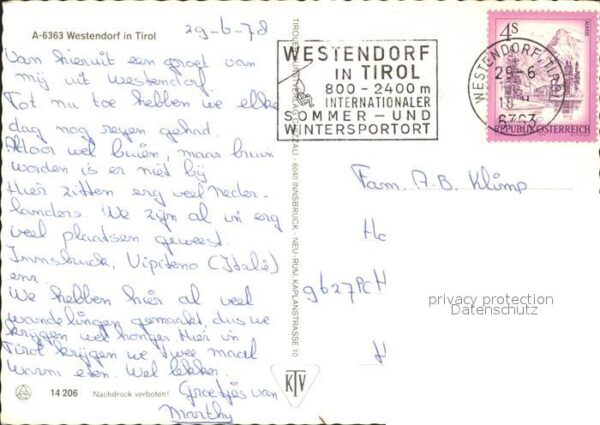 A-6363 Westendorf in Tirol
29-6-78
Van hieruit een groet van
mij uit Westendorf.
Tot nu toe hebben we elke
dag nog regen gehad.
wel buien, maar bruin
worden is er niet bij
Hier zitten erg veel neder
landers. We zijn al in erg
veel plaatsen geweest.
Innsbruck, Vipiteno (Italë)
enz.
We hebben hier al veel
wandelingen gemaakt, dus we
krijgen wel honger. Hier in
Tirol krijgen we twee maal
warm eten. Wel lekker.
Groetjes van
Marthy
14 206 Nachdruck verboten!
INNSBRUCK - NEU-RUM, KAPLANSTRASSE 10
KTV
WESTENDORF
IN TIROL
800-2400m
INTERNATIONALER
SOMMER - UND
WINTERSPORTORT
WESTENDORF, TIROL
29-6
18
6363
4S
REPUBLIK ÖSTERREICH
Fam. A.B. Klimp
Hc
9627PCH
H
privacy protection
Datenschutz